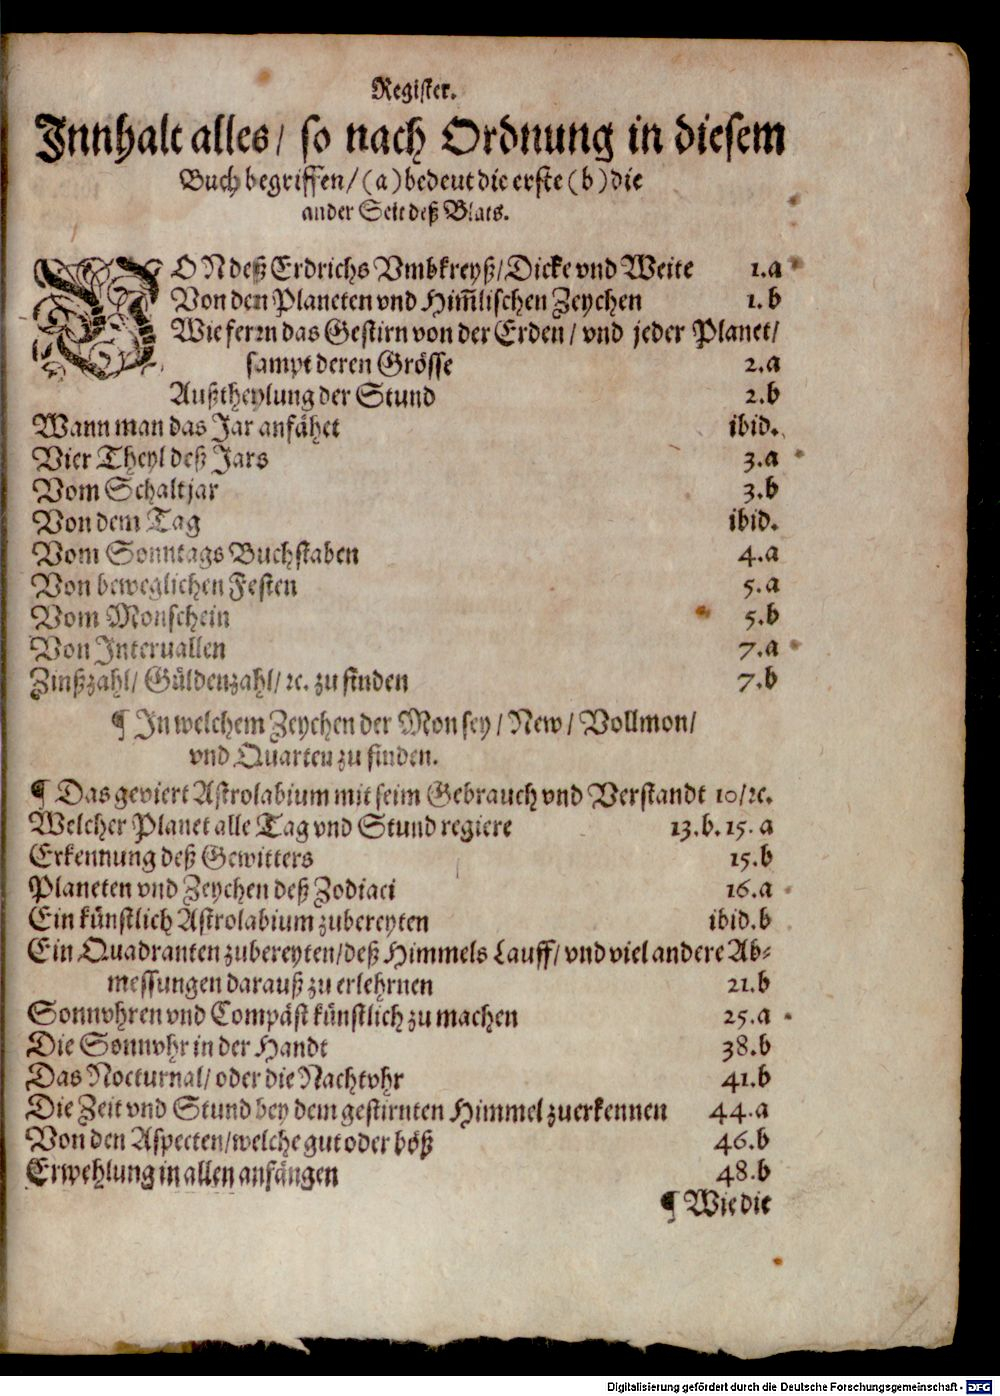 Register.
Innhalt alles/ so nach Ordnung in diesem
Buch begriffen/ (a) bedeut die erste (b) die
ander Seit deß Blats.
VON deß Erdrichs Vmbkreyß/ Dicke vnd Weite 1.a
Von den Planeten vnd Him̃lischen Zeychen 1.b
Wie ferrn das Gestirn von der Erden/ vnd jeder Planet/
sampt deren Grösse 2.a
Außtheylung der Stund 2.b
Wann man das Jar anfähet ibid.
Vier Theyl deß Jars 3.a
Vom Schaltjar 3.b
Von dem Tag ibid.
Vom Sonntags Buchstaben 4.a
Von beweglichen Festen 5.a
Vom Monschein 5.b
Von Interuallen 7.a
Zinßzahl/ Güldenzahl/ ꝛc. zu finden 7.b
¶ In welchem Zeychen der Mon sey/ New/ Vollmon/
vnd Quarten zu finden.
¶ Das geviert Astrolabium mit seim Gebrauch vnd Verstandt 10/ ꝛc.
Welcher Planet alle Tag vnd Stund regiere 13.b.15.a
Erkennung deß Gewitters 15.b
Planeten vnd Zeychen deß Zodiaci 16.a
Ein künstlich Astrolabium zubereyten ibid.b
Ein Quadranten zubereyten/ deß Himmels Lauff/ vnd viel andere Ab-
messungen darauß zu erlehrnen 21.b
Sonnvhren vnd Compäst künstlich zu machen 25.a
Die Sonnvhr in der Handt 38.b
Das Nocturnal/ oder die Nachtvhr 41.b
Die Zeit vnd Stund bey dem gestirnten Himmel zuerkennen 44.a
Von den Aspecten/ welche gut oder böß 46.b
Erwehlung in allen anfängen 48.b
¶ Wie die
Digitalisierung gefördert durch die Deutsche Forschungsgemeinschaft - DFG